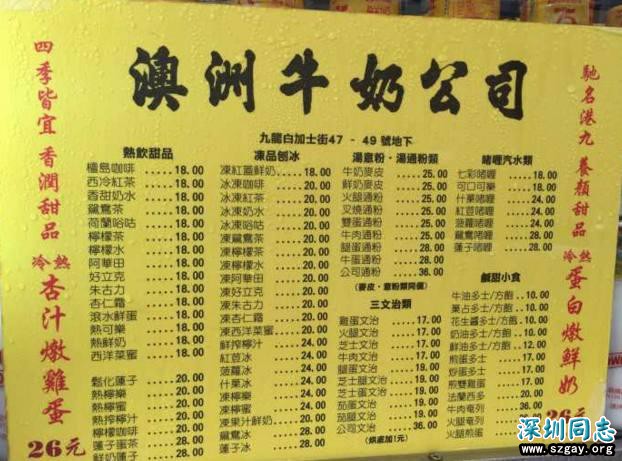 澳洲牛奶公司
九龍白加士街47 - 49 號地下
四季皆宜 香潤甜品
冷熱 杏汁燉雞蛋
26元
馳名港九 養顏甜品
冷熱 蛋白燉鮮奶
26元
熱飲甜品
檀島咖啡 .....18.00
西冷紅茶 .....18.00
香甜奶水 .....18.00
鴛鴦茶 .....18.00
荷蘭哈咕 .....18.00
檸檬茶 .....18.00
檸檬水 .....18.00
阿華田 .....18.00
好立克 .....18.00
朱古力 .....18.00
杏仁霜 .....18.00
滾水鮮蛋 .....18.00
熱可樂 .....18.00
熱鮮奶 .....18.00
西洋菜蜜 .....18.00
鬆化蓮子 .....20.00
熱檸樂 .....20.00
熱檸蜜 .....20.00
熱鮮檸汁 .....20.00
檸檬咖啡 .....20.00
蓮子蛋茶
鮮奶蓮子
凍品刨冰
凍紅蓋鮮奶 .....18.00
冰凍咖啡 .....20.00
冰凍紅茶 .....20.00
冰凍奶水 .....20.00
冰凍哈咕 .....20.00
凍鴛鴦茶 .....20.00
凍檸檬茶 .....20.00
凍檸檬水 .....20.00
凍阿華田 .....20.00
凍好立克 .....20.00
凍朱古力 .....20.00
凍杏仁霜 .....20.00
凍西洋菜蜜 .....20.00
鮮搾檸汁 .....24.00
紅荳冰 .....24.00
菠蘿冰 .....24.00
什菓冰 .....24.00
凍檸樂 .....24.00
凍檸蜜 .....24.00
凍菓汁鮮奶 .....24.00
鴛鴦冰 .....28.00
蓮子冰 .....28.00
湯意粉・湯通粉類
牛奶麥皮 .....25.00
鮮奶麥皮 .....25.00
火腿通粉 .....25.00
叉燒通粉 .....25.00
雙蛋通粉 .....25.00
牛肉通粉 .....28.00
腿蛋通粉 .....28.00
牛蛋通粉 .....28.00
公司通粉 .....36.00
(麥皮、意粉類同價)
三文治類
雞蛋文治 .....17.00
火腿文治 .....17.00
芝士文治 .....17.00
牛肉文治 .....17.00
腿蛋文治 .....19.00
芝士腿文治 .....19.00
芝士蛋文治 .....19.00
茄蛋文治 .....20.00
茄腿文治 .....20.00
公司文治 .....36.00
(烘底加1元)
啫喱汽水類
七彩啫喱 .....18.00
可口可樂 .....18.00
什菓啫喱 .....24.00
紅荳啫喱 .....24.00
菠蘿啫喱 .....24.00
鴛鴦啫喱 .....28.00
蓮子啫喱 .....28.00
鹹甜小食
牛油多士/方飽 ..10.00
菓占多士/方飽 ..10.00
花生醬多士/方飽 ..10.00
奶油多士/方飽 ..10.00
鮮油多士/方飽 ..10.00
煎蛋多士
炒蛋多士
煎雙雞蛋
法蘭西多
牛肉奄列
火腿奄列
火腿煎蛋
深圳同志
www.szgay.org